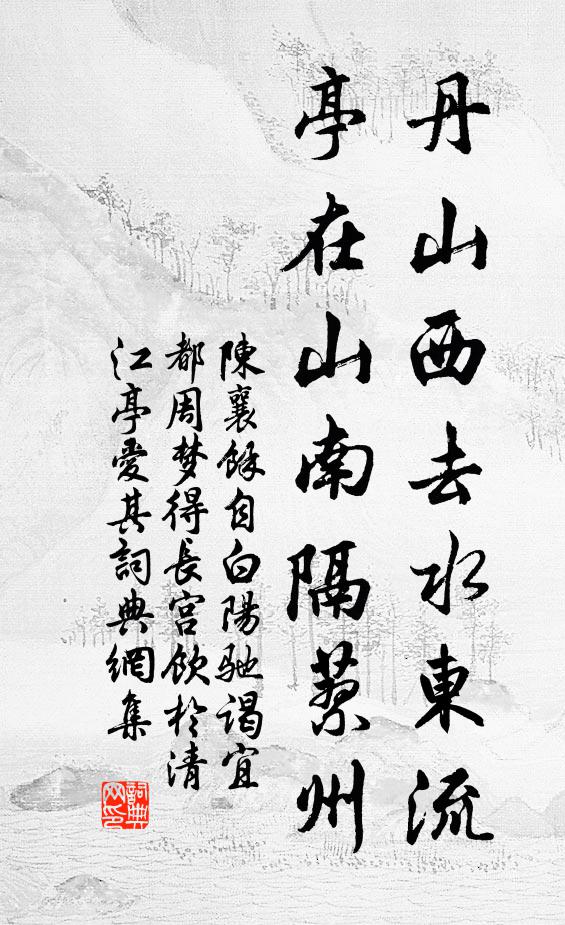 丹山西去水東流
亭在山南隔蔡州
陳襄餘自白陽馳謁宜
都周梦得長宫飲於清
江亭愛其詞典網集
詞典
网印